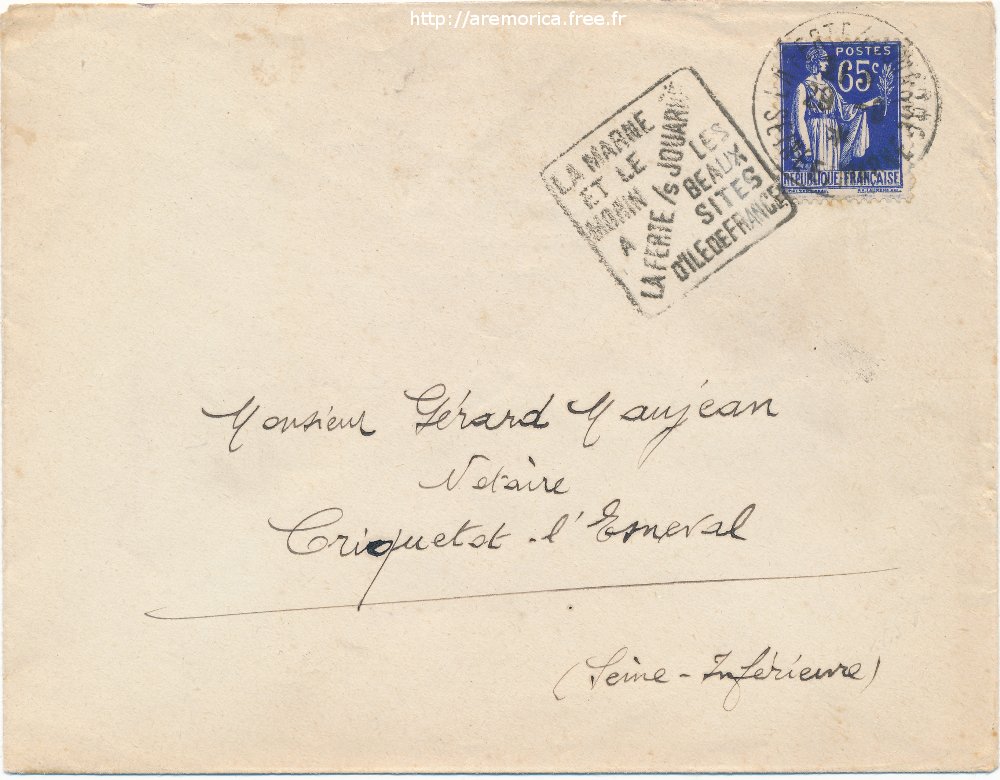 http://aremorica.free.fr
POSTES
65c
RÉPUBLIQUE FRANÇAISE
LA MARNE
ET LE
MORIN
A
LA FERTE /s JOUARRE
LES
BEAUX
SITES
D'ILE DE FRANCE
Monsieur Gérard Maujean
Notaire
Criquetot-l'Esneval
(Seine-Inférieure)